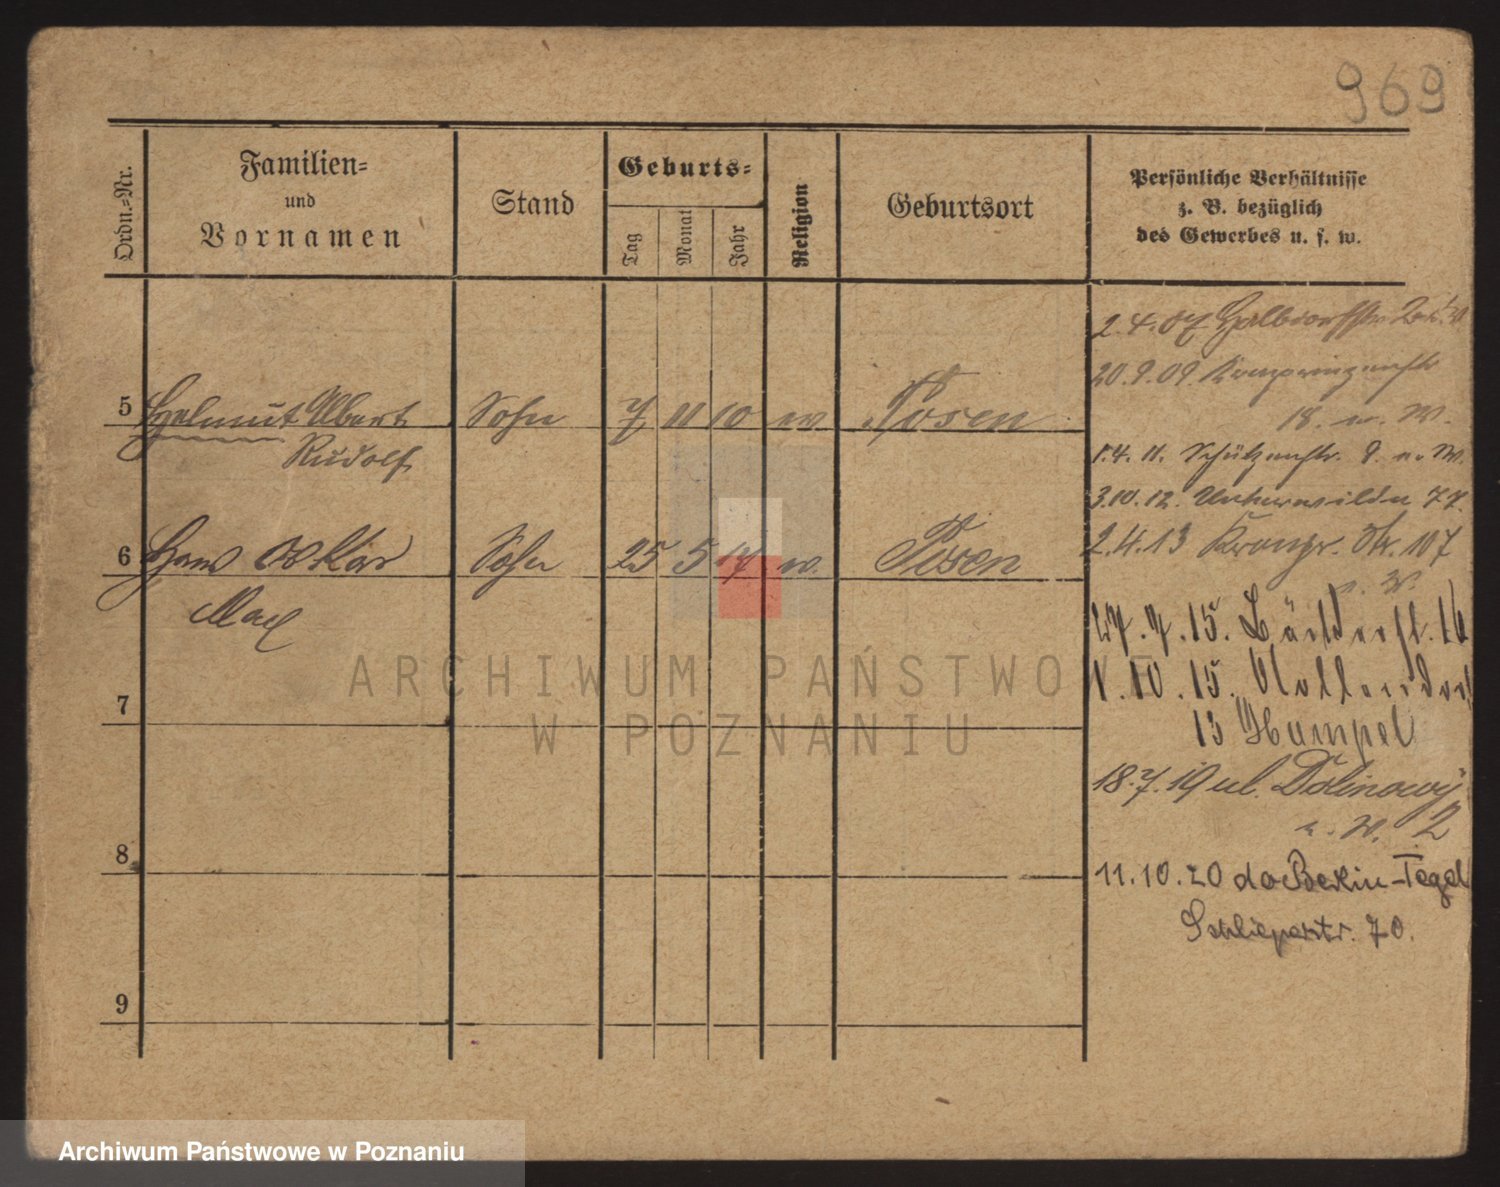 969
Ordn.-Nr.
Familien-
und
Vornamen
Stand
Geburts-
Tag
Monat
Jahr
Religion
Geburtsort
Persönliche Verhältnisse
z. B. bezüglich
des Gewerbes u. s. w.
2.4.07 Halbdorfstr
20.9.09 Kronprinzenstr
18. n. W.
5 Helmut Albert Sohn 7 11 10 ev Posen
Rudolf
1.4.11. Schützenstr. 9. n. W.
3.10.12. Unterwilda 77.
6 Hans Oskar Sohn 25 5 17 ev. Posen
Max
2.4.13 Kronpr. Str. 107
n. W.
27.7.15. 16
1.10.15.
13 Hampel
7
18.7.19 ul. Dolinowy
n. W. 2
8
11.10.20 do Berlin-Tegel
Schlieperstr. 70.
9
ARCHIWUM PAŃSTWOWE
W POZNANIU
Archiwum Państwowe w Poznaniu